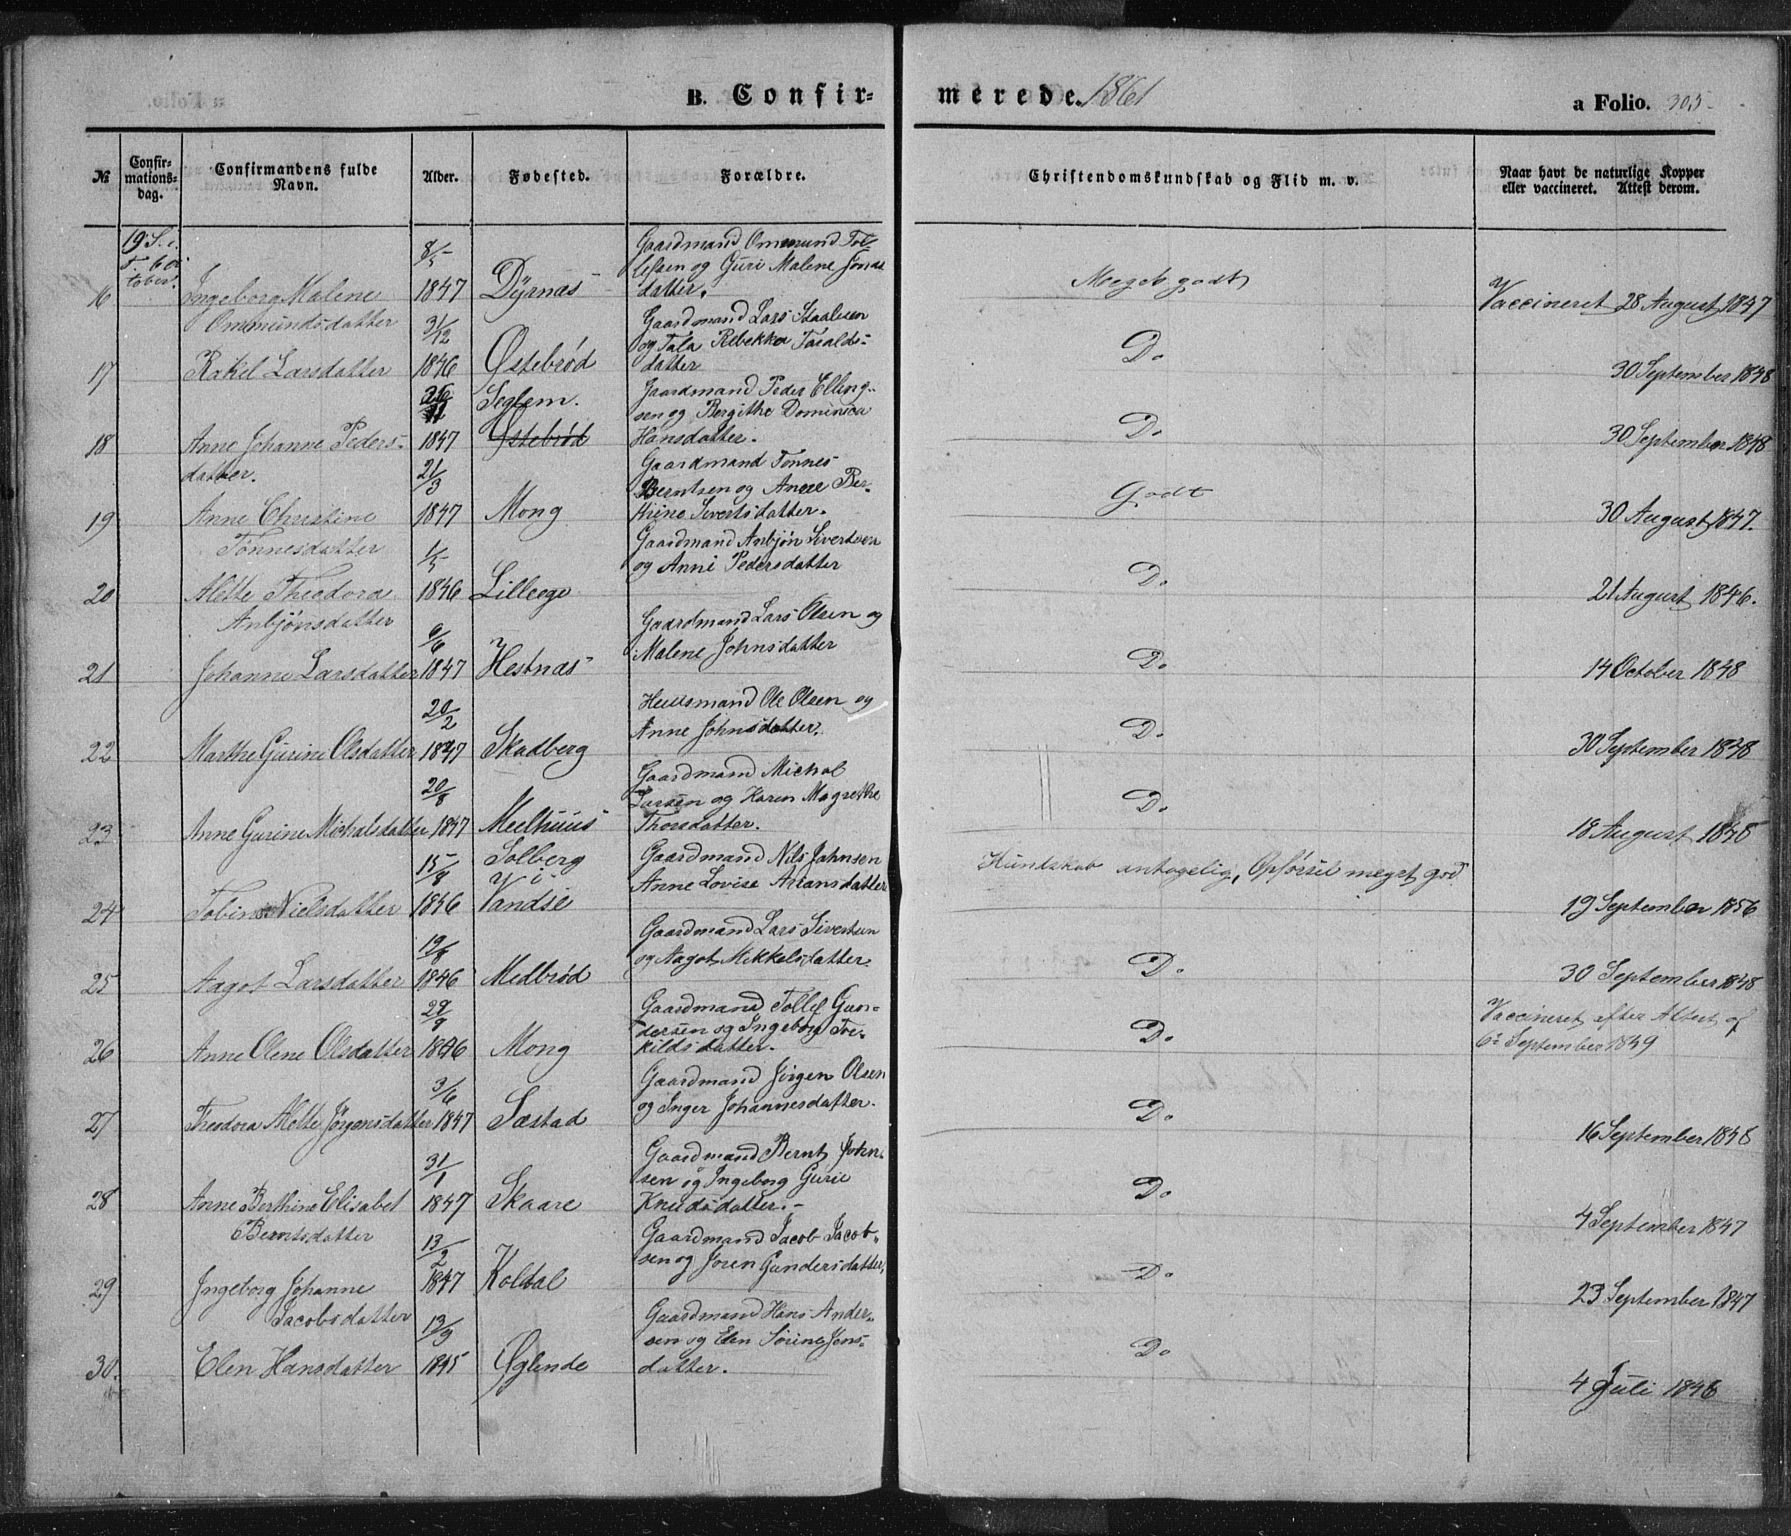 B. Confir-
merede. 1861
a Folio. 305
№
Confir-
mations-
dag.
Confirmandens fulde
Navn.
Alder.
Fødested.
Forældre.
Christendomskundskab og Flid m. v.
Naar havt de naturlige Kopper
eller vaccineret. Attest derom.
19 S. i
T. 6 Oc
tober.
16 Ingeborg Malene
Ommundsdatter
8/5
1847
Dyrnæs
Gaardmand Ommund Tol-
lefsen og Guri Malene Jonas
datter.
Meget godt
Vaccineret 28 August 1847
17 Rakel Larsdatter
31/12
1846
Østebrød
Gaardmand Lars Staalesen
og Tala Rebekka Taralds-
datter
Do
30 September 1848
18 Anne Johanne Peders-
datter.
26/11
1847
Seglem.
Østebrød
Gaardmand Peder Elling-
sen og Bergithe Dominica
Hansdatter.
Do
30 September 1848
19 Anne Christine
Tønnesdatter
21/3
1847
Mong
Gaardmand Tønnes
Berntsen og Anne Ber-
thine Sivertsdatter.
Godt
30 August 1847.
20 Alette Theodora
Anbjønsdatter
1/5
1846
Lilleoge
Gaardmand Anbjøn Sivertsen
og Anni Pedersdatter
Do
21 August 1846.
21 Johanne Larsdatter
6/6
1847
Hestnæs
Gaardmand Lars Olsen og
Malene Johnsdatter
Do
14 October 1848
22 Marthe Gurine Olsdatter
20/2
1847
Skadberg
Huusmand Ole Olsen og
Anne Johnsdatter.
Do
30 September 1848
23 Anne Gurine Michalsdatter
20/8
1847
Meelhuus
Gaardmand Michal
Larsen og Karen Magrethe
Thorsdatter.
Do
18 August 1848
24 Tobine Nielsdatter
15/8
1846
Solberg
i
Vandse
Gaardmand Nils Jahnsen
Anne Lovise Ariansdatter
Kundskab antagelig, Opførsel meget god
19 September 1856
25 Aagot Larsdatter
19/8
1846
Medbrød
Gaardmand Lars Sivertsen
og Aagot Mikkelsdatter.
Do
30 September 1848
26 Anne Olene Olsdatter
29/9
1846
Mong
Gaardmand Tollef Gun-
dersen og Ingeborg Tor-
kildsdatter.
Do
Vaccineret efter Attest af
6te September 1849
27 Theodora Alette Jørgensdatter
3/6
1847
Sæstad
Gaardmand Jørgen Olsen
og Inger Johannesdatter.
Do
16 September 1848
28 Anne Berthine Elisabet
Berntsdatter
31/1
1847
Skaare
Gaardmand Bernt John-
sen og Ingeborg Gurie
Knudsdatter.
Do
4 September 1847
29 Ingeborg Johanne
Jacobsdatter
13/2
1847
Koldal
Gaardmand Jacob Jacob-
sen og Joren Gundersdatter,
Do
23 September 1847
30. Elen Hansdatter
13/9
1845
Øglende
Gaardmand Hans Ander-
sen og Elen Sørine Jens-
datter.
Do
4 Juli 1846